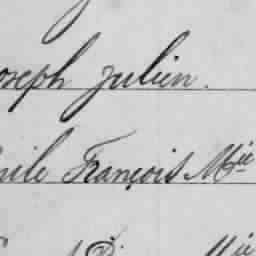 oseph Julien.
mile François Mie